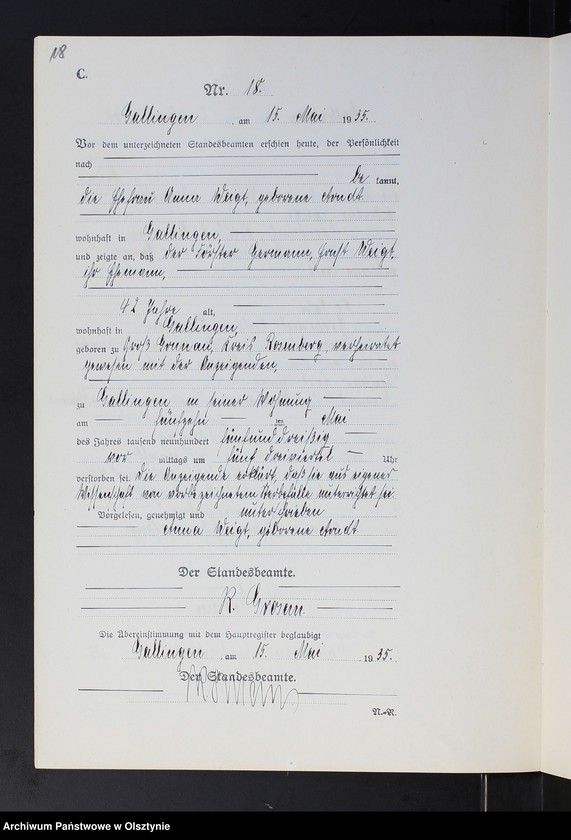 18
C.
Nr. 18.
Gallingen, am 15. Mai 1935.
Vor dem unterzeichneten Standesbeamten erschien heute, der Persönlichkeit
nach
be kannt,
die Ehefrau Anna Weigt, geborene Arndt
wohnhaft in Gallingen,
und zeigte an, daß der Förster Hermann, Ernst Weigt,
ihr Ehemann,
42 Jahre alt,
wohnhaft in Gallingen
geboren zu Groß Kreis Rosenberg, verheiratet
gewesen mit der Anzeigenden,
zu Gallingen, in seiner Wohnung
am fünfzehn ten Mai
des Jahres tausend neunhundert fünfunddreißig
vor mittags um fünf dreiviertel Uhr
verstorben sei. Die Anzeigende erklärt, daß sie aus eigener
Wissenschaft von vorbezeichnetem Sterbefalle unterrichtet sei.
Vorgelesen, genehmigt und unterschrieben
Anna Weigt, geborene Arndt
Der Standesbeamte.
R.
Die Übereinstimmung mit dem Hauptregister beglaubigt
Gallingen, am 15. Mai 1935.
Der Standesbeamte.
N.-R.
Archiwum Państwowe w Olsztynie